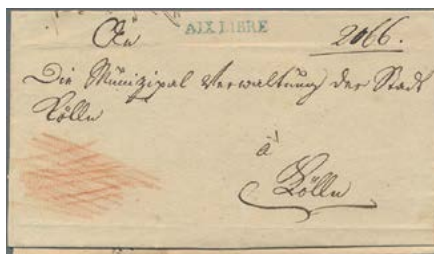 An AIX LIBRE 2066.
Die Münizipal Verwaltung der Stadt
Kölln
à
Kölln